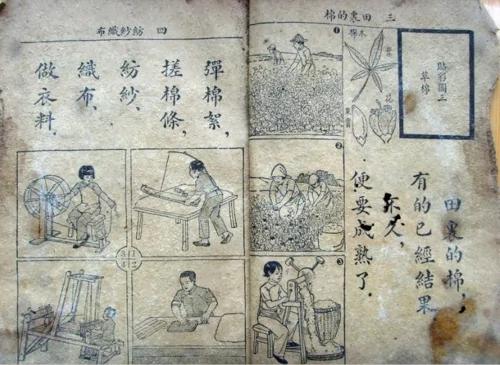 三 田裏的棉
貼彩圖三
草棉
葉
花
田裏的棉，
有的已經結果，
不久，
便要成熟了．
1
2
3
四 紡紗織布
彈棉絮，
搓棉條，
紡紗，
織布，
做衣料．